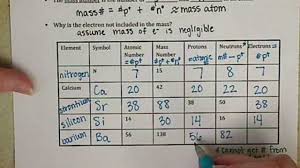 mass# = #p⁺ + #n° ≈ mass atom
• Why is the electron not included in the mass?
assume mass of e⁻ is negligible
Element Symbol Atomic Number = #p⁺ Mass Number = #p⁺+#n° Protons Neutrons° Electrons
nitrogen N 7 15 7 8 7
Calcium Ca 20 42 20 22 20
strontium Sr 38 88 38 50 38
silicon Si 14 30 14 16 14
barium Ba 56 138 56 82
cannot get # from